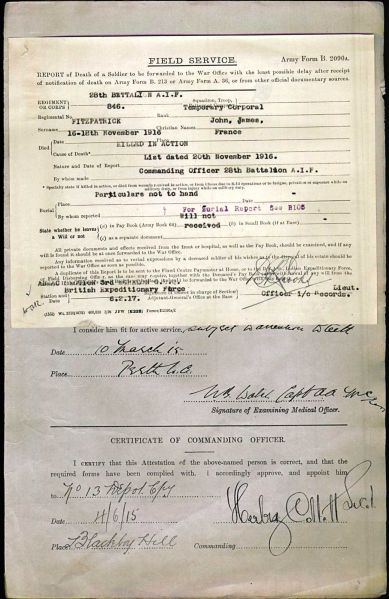 FIELD SERVICE.
Army Form B. 2090A.
REPORT of Death of a Soldier to be forwarded to the War Office with the least possible delay after receipt
of notification of death on Army Form B. 213 or Army Form A. 36, or from other official documentary sources.
28th BATTALION A.I.F.
REGIMENT OR CORPS)
Squadron, Troop,
846.
Temporary Corporal
Regimental No.
Rank
FITZPATRICK
John, James,
Surname
Christian Names
16-18th November 1916
France
Died
Date
Place
KILLED IN ACTION
Cause of Death*
List dated 20th November 1916.
Nature and Date of Report
Commanding Officer 28th Battalion A.I.F.
By whom made
* Specially state if killed in action, or died from wounds received in action, or from illness due to
Particulars not to hand
Burial
Place
Date
For Burial Report See B103
By whom reported
Will not
State whether he leaves a Will or not
(a) in Pay Book (Army Book 64)
received
(b) in Small Book (if at Base)
(c) as a separate document
All private documents and effects received from the front or hospital, as well as the Pay Book, should be examined, and if any
will is found it should be at once forwarded to the War Office.
Any information received as to verbal expressions by a deceased soldier of his wishes as to the disposal of his estate should be
reported to the War Office as soon as possible.
A duplicate of this Report is to be sent to the Fixed Centre Paymaster at Home
Lieut.
British Expeditionary Force
Officer i/c Records.
Station and Date
6.2.17.
Adjutant-General's Office at the Base
I consider him fit for active service,
Date 10 March 15
Place Perth W.A.
Signature of Examining Medical Officer.
CERTIFICATE OF COMMANDING OFFICER.
I CERTIFY that this Attestation of the above-named person is correct, and that the
required forms have been complied with. I accordingly approve, and appoint him
to No 13 Depot Cpy
Date 4/6/15
Place Blackboy Hill
Commanding